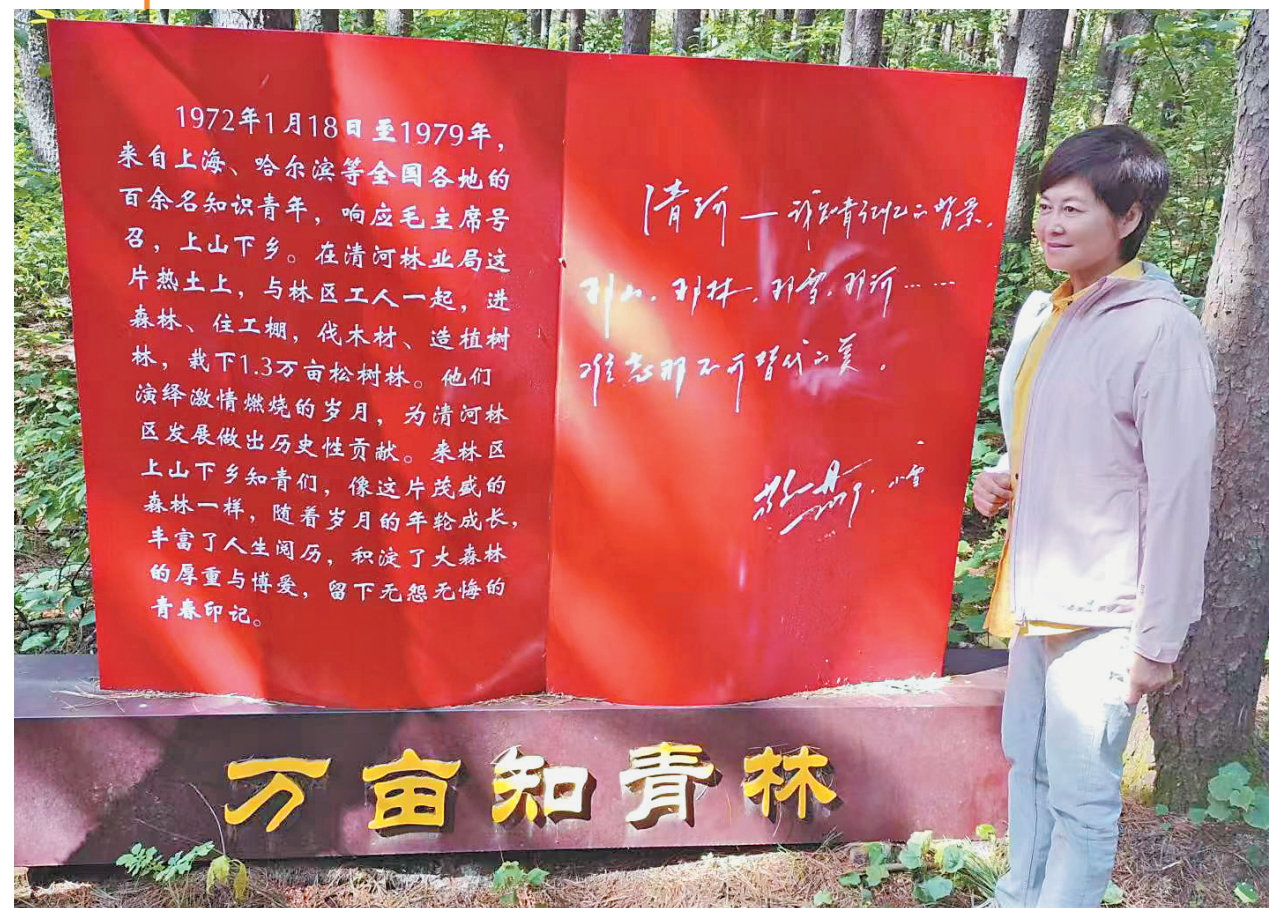 1972年1月18日至1979年，
来自上海、哈尔滨等全国各地的
百余名知识青年，响应毛主席号
召，上山下乡。在清河林业局这
片热土上，与林区工人一起，进
森林、住工棚，伐木材、造植树
林，栽下1.3万亩松树林。他们
演绎激情燃烧的岁月，为清河林
区发展做出历史性贡献。来林区
上山下乡知青们，像这片茂盛的
森林一样，随着岁月的年轮成长，
丰富了人生阅历，积淀了大森林
的厚重与博爱，留下无怨无悔的
青春印记。
清河——知青的背景。
那山、那林、那雪、那河……
难忘那不可替代的美。
万亩知青林